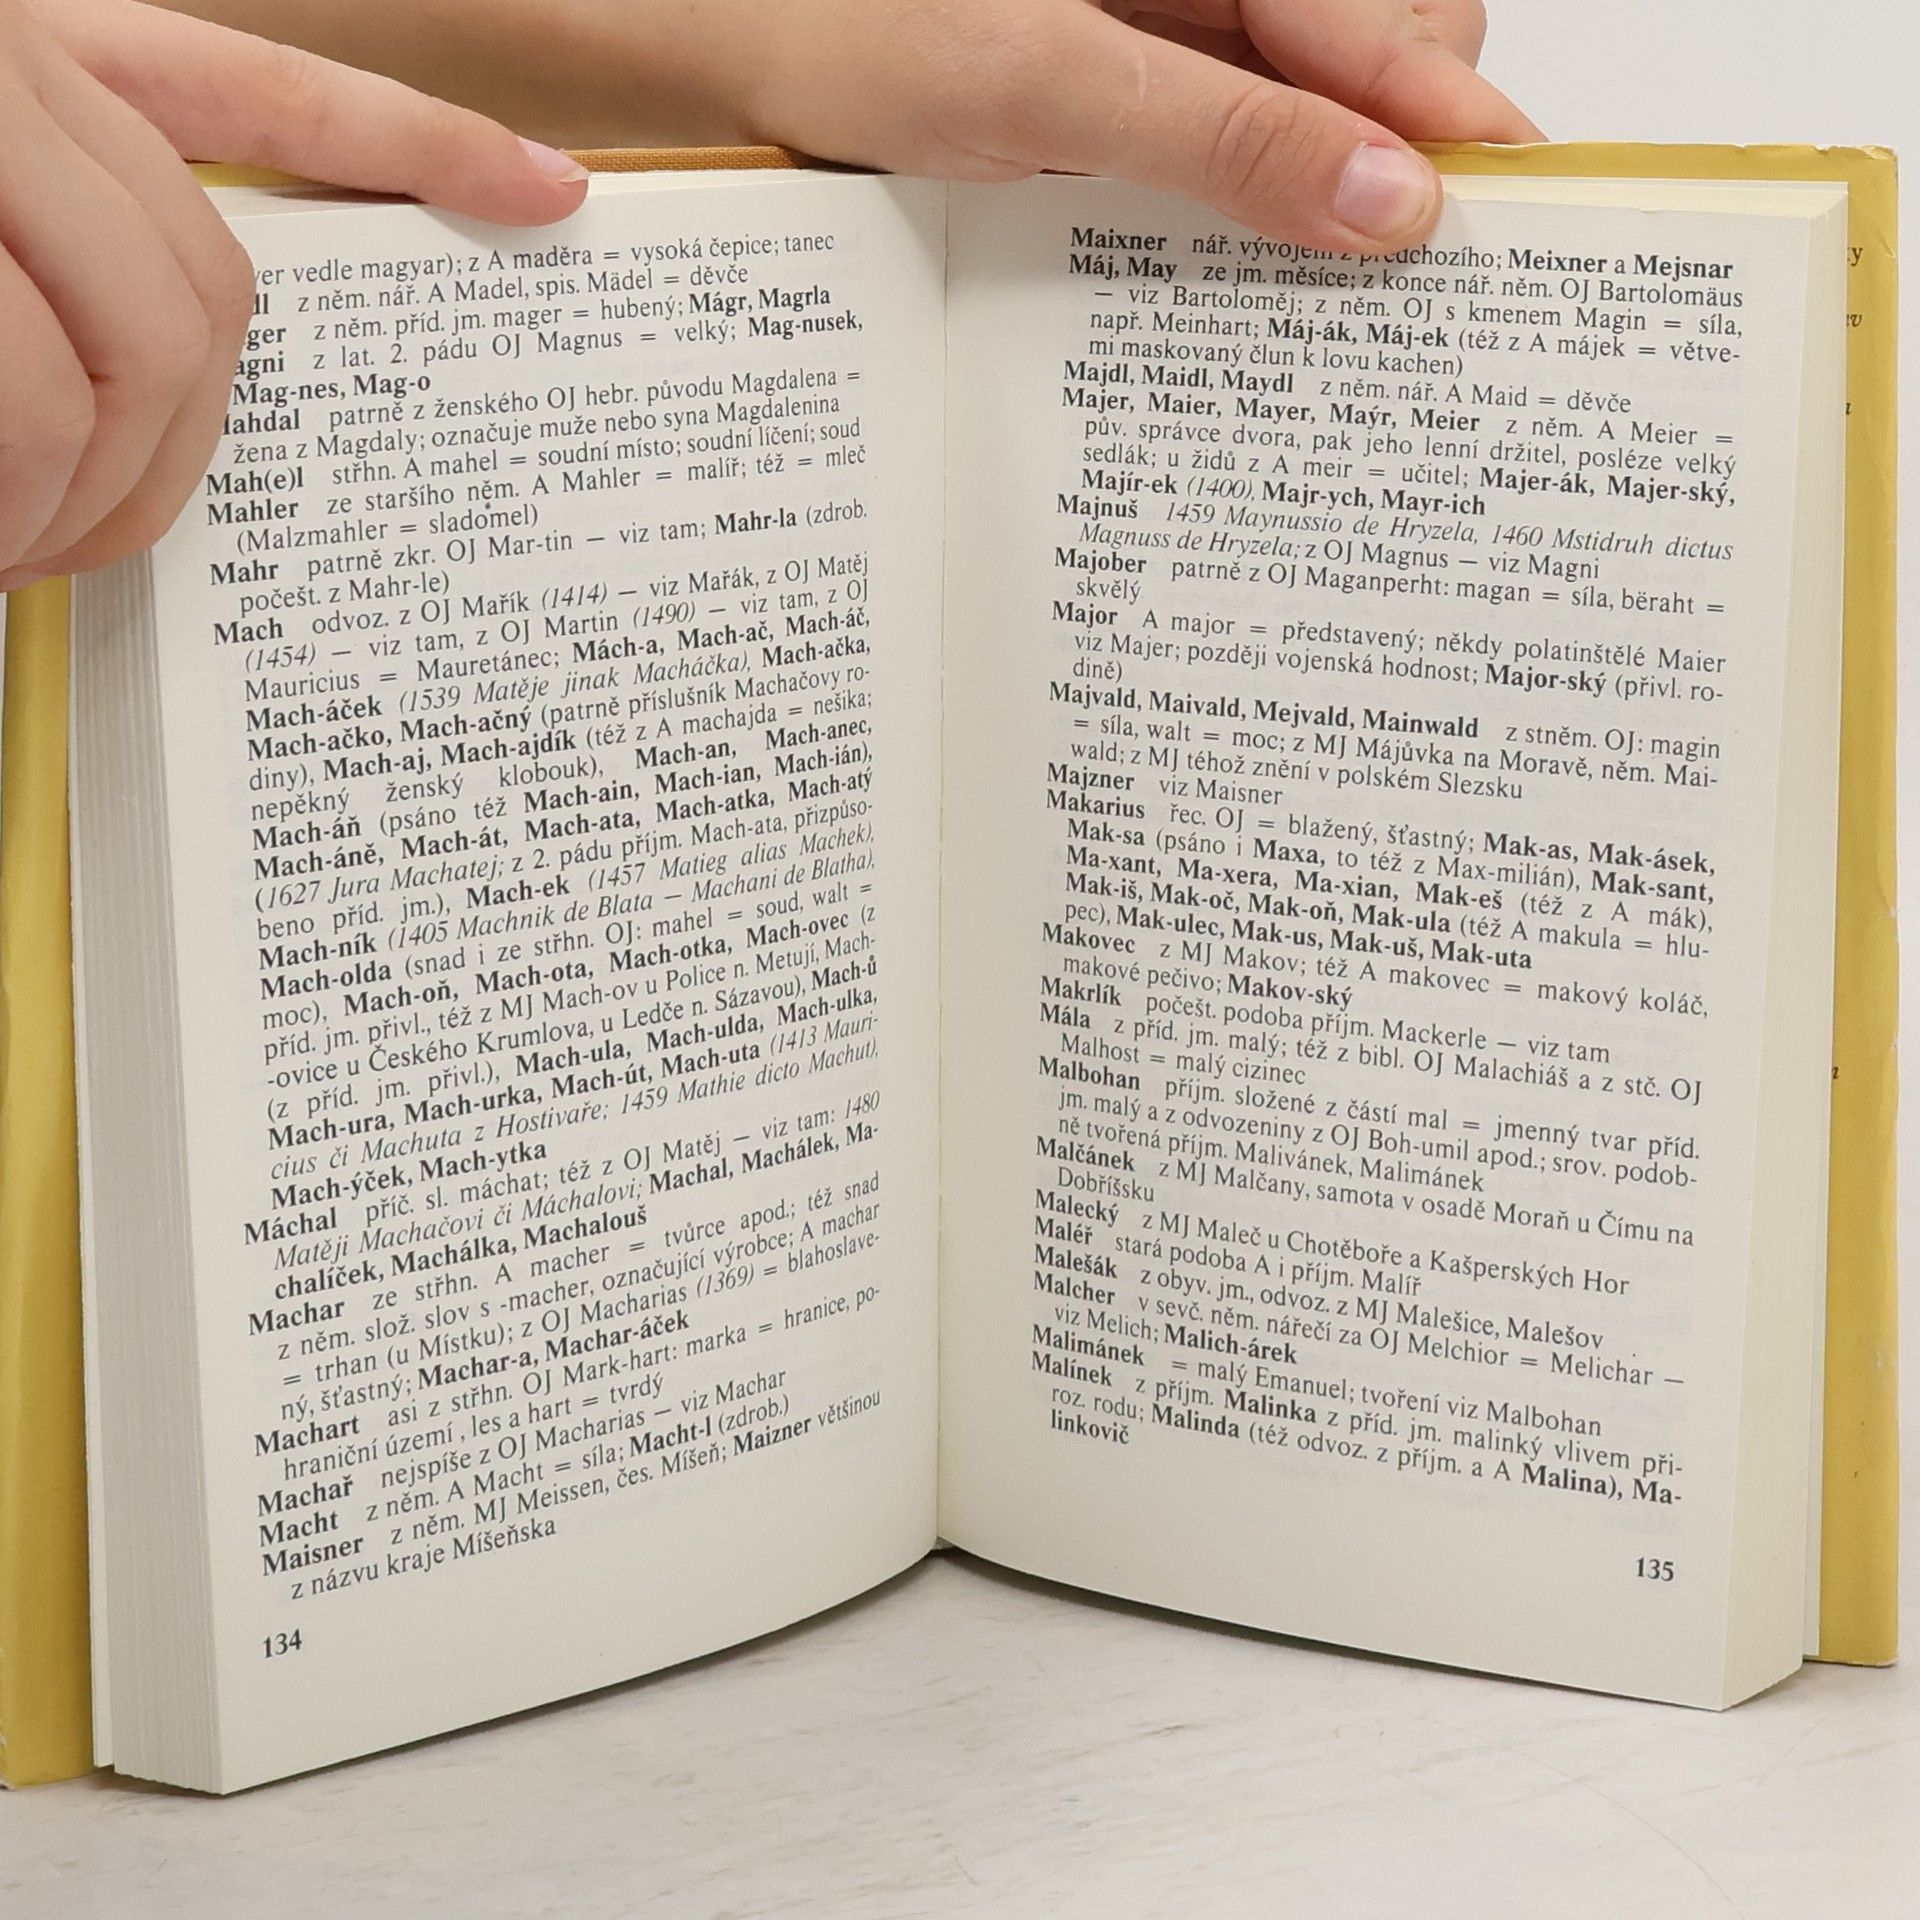 vedle magyar); z A maděra = vysoká čepice; tanec
z něm. nář. A Madel, spis. Mädel = děvče
z něm. příd. jm. mager = hubený; Mágr, Magrla
z lat. 2. pádu OJ Magnus = velký; Mag-nusek,
Mag-nes, Mag-o
patrně z ženského OJ hebr. původu Magdalena =
žena z Magdaly; označuje muže nebo syna Magdalenina
Mah(e)l střhn. A mahel = soudní místo; soudní líčení; soud
Mahler ze staršího něm. A Mahler = malíř; též = mleč
(Malzmahler = sladomel)
Mahr patrně zkr. OJ Mar-tin — viz tam; Mahr-la (zdrob.
počešt. z Mahr-le)
Mach odvoz. z OJ Mařík (1414) — viz Mařák, z OJ Matěj
(1454) — viz tam, z OJ Martin (1490) — viz tam, z OJ
Mauricius = Mauretánec; Mách-a, Mach-ač, Mach-áč,
Mach-áček (1539 Matěje jinak Macháčka), Mach-ačka,
Mach-ačko, Mach-ačný (patrně příslušník Machačovy ro-
diny), Mach-aj, Mach-ajdík (též z A machajda = nešika;
nepěkný ženský klobouk), Mach-an, Mach-anec,
Mach-áň (psáno též Mach-ain, Mach-ian, Mach-ián),
Mach-áně, Mach-át, Mach-ata, Mach-atka, Mach-atý
(1627 Jura Machatej; z 2. pádu příjm. Mach-ata, přizpůso-
beno příd. jm.), Mach-ek (1457 Matieg alias Machek),
Mach-ník (1405 Machnik de Blata — Machani de Blatha),
Mach-olda (snad i ze střhn. OJ: mahel = soud, walt =
moc), Mach-oň, Mach-ota, Mach-otka, Mach-ovec (z
příd. jm. přivl., též z MJ Mach-ov u Police n. Metují, Mach-
-ovice u Českého Krumlova, u Ledče n. Sázavou), Mach-ů
(z příd. jm. přivl.), Mach-ula, Mach-ulda, Mach-ulka,
Mach-ura, Mach-urka, Mach-út, Mach-uta (1413 Mauri-
cius či Machuta z Hostivaře; 1459 Mathie dicto Machut),
Mach-ýček, Mach-ytka
Máchal příč. sl. máchat; též z OJ Matěj — viz tam: 1480
Matěji Machačovi či Máchalovi; Machal, Machálek, Ma-
chalíček, Machálka, Machalouš
Machar ze střhn. A macher = tvůrce apod.; též snad
z něm. slož. slov s -macher, označující výrobce; A machar
= trhan (u Místku); z OJ Macharias (1369) = blahoslave-
ný, šťastný; Machar-a, Machar-áček
Machart asi z střhn. OJ Mark-hart: marka = hranice, po-
hraniční území , les a hart = tvrdý
Machař nejspíše z OJ Macharias — viz Machar
Macht z něm. A Macht = síla; Macht-l (zdrob.)
Maisner z něm. MJ Meissen, čes. Míšeň; Maizner většinou
z názvu kraje Míšeňska
134
Maixner nář. vývojem z předchozího; Meixner a Mejsnar
Máj, May ze jm. měsíce; z konce nář. něm. OJ Bartolomäus
— viz Bartoloměj; z něm. OJ s kmenem Magin = síla,
např. Meinhart; Máj-ák, Máj-ek (též z A májek = větve-
mi maskovaný člun k lovu kachen)
Majdl, Maidl, Maydl z něm. nář. A Maid = děvče
Majer, Maier, Mayer, Maýr, Meier z něm. A Meier =
pův. správce dvora, pak jeho lenní držitel, posléze velký
sedlák; u židů z A meir = učitel; Majer-ák, Majer-ský,
Majír-ek (1400), Majr-ych, Mayr-ich
Majnuš 1459 Maynussio de Hryzela, 1460 Mstidruh dictus
Magnuss de Hryzela; z OJ Magnus — viz Magni
Majober patrně z OJ Maganperht: magan = síla, bëraht =
skvělý
Major A major = představený; někdy polatinštělé Maier
viz Majer; později vojenská hodnost; Major-ský (přivl. ro-
dině)
Majvald, Maivald, Mejvald, Mainwald z stněm. OJ: magin
= síla, walt = moc; z MJ Májůvka na Moravě, něm. Mai-
wald; z MJ téhož znění v polském Slezsku
Majzner viz Maisner
Makarius řec. OJ = blažený, šťastný; Mak-as, Mak-ásek,
Mak-sa (psáno i Maxa, to též z Max-milián), Mak-sant,
Ma-xant, Ma-xera, Ma-xian, Mak-eš (též z A mák),
Mak-iš, Mak-oč, Mak-oň, Mak-ula (též A makula = hlu-
pec), Mak-ulec, Mak-us, Mak-uš, Mak-uta
Makovec z MJ Makov; též A makovec = makový koláč,
makové pečivo; Makov-ský
Makrlík počešt. podoba příjm. Mackerle — viz tam
Mála z příd. jm. malý; též z bibl. OJ Malachiáš a z stč. OJ
Malhost = malý cizinec
Malbohan příjm. složené z částí mal = jmenný tvar příd.
jm. malý a z odvozeniny z OJ Boh-umil apod.; srov. podob-
ně tvořená příjm. Malivánek, Malimánek
Malčánek z MJ Malčany, samota v osadě Moraň u Čímu na
Dobříšsku
Malecký z MJ Maleč u Chotěboře a Kašperských Hor
Maléř stará podoba A i příjm. Malíř
Malešák z obyv. jm., odvoz. z MJ Malešice, Malešov
Malcher v sevč. něm. nářečí za OJ Melchior = Melichar —
viz Melich; Malich-árek
Malimánek = malý Emanuel; tvoření viz Malbohan
Malínek z příjm. Malinka z příd. jm. malinký vlivem při-
roz. rodu; Malinda (též odvoz. z příjm. a A Malina), Ma-
linkovič
135